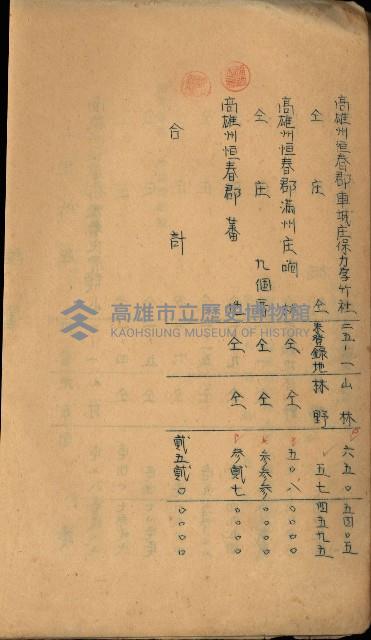 高雄州恒春郡車城庄保力字竹社二五ノ一山林 六五〇五四〇五
仝庄 仝未登錄地林野 五七四五九五
高雄州恒春郡滿州庄 仝仝 五〇八〇〇〇〇
仝庄 九個 仝仝 参参参〇〇〇〇
高雄州恒春郡蕃地 仝仝 参貳七〇〇〇〇
合計 貳五貳〇〇〇〇〇
高雄市立歷史博物館
KAOHSIUNG MUSEUM OF HISTORY